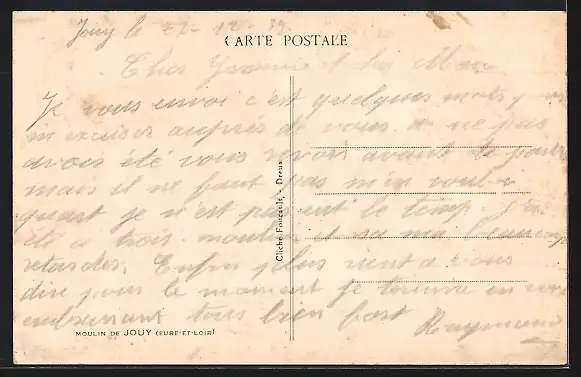 Jouy le 22-12-39
CARTE POSTALE
Cher Yvonne et
Je vous envoi c'est quelques mots
m'excuser auprès de vous. a ne pas
avois été vous revoir avant de partir
mais il ne faut pas m'en voul
quant je n'est pas eut le temp. j'ai
été a trois et sa ma beaucoup
retarder. Enfin plus rient a vous
dire pour le moment je termine en vous
embrassant tous bien fort
Raymond
Cliché Foucault - Dreux
MOULIN DE JOUY (EURE-ET-LOIR)